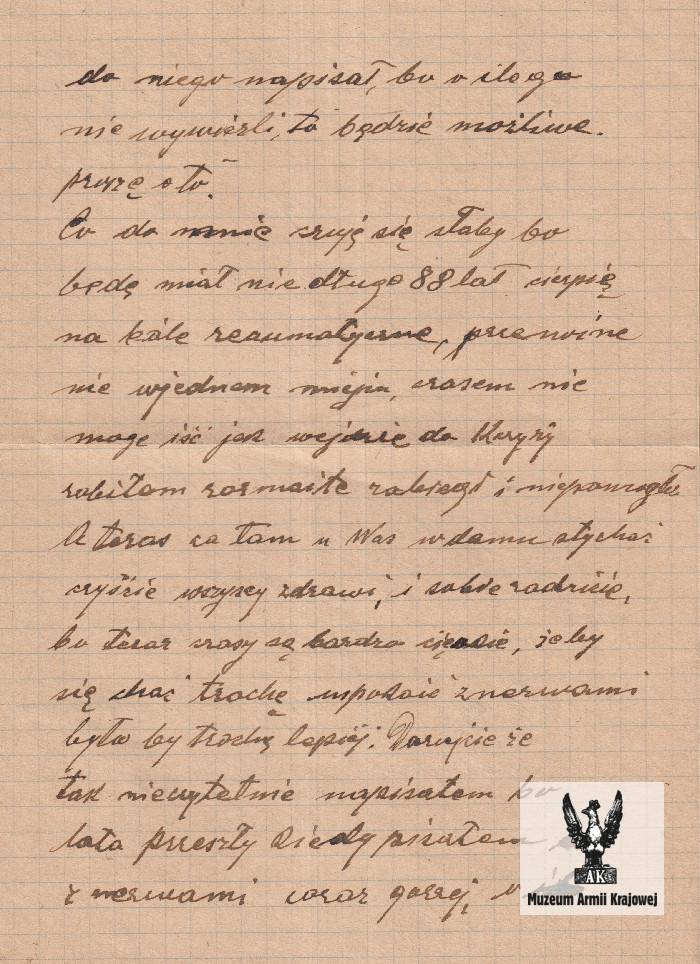 do niego napisał, bo o ile go
nie wywieźli, to będzie możliwe.
proszę o to.
Co do mnie czuję się słaby bo
będę miał nie długo 88 lat cierpię
na bóle reaumatyczne, przenośne
nie wjednem miejscu, czasem nie
moge iść jak wejdzie do
robiłem rozmaite zabiegi i niepomogło.
A teraz co tam u Was wdomu słychać
czyście wszyscy zdrowi, i sobie radzicie,
bo teraz czasy są bardzo ciężkie, żeby
się choć trochę uspokoić znerwami
było by trochę lepiej. Darujcie że
tak nieczytelnie napisałem bo
lata przeszły kiedy pisałem
z nerwami coraz gorzej,
AK
Muzeum Armii Krajowej